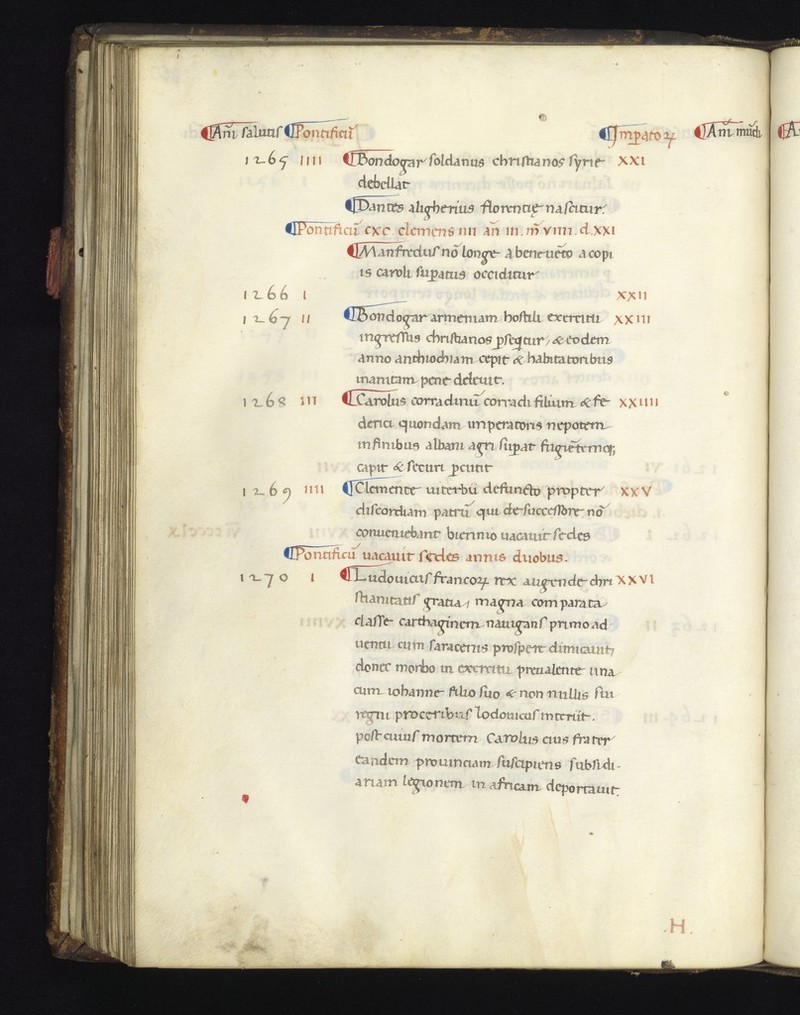 Añi salutis Pontificũ Imꝑatoꝝ Añi mũdi
1265 IIII Bondogar soldanus christianos syrie XXI
debellat
Dantes aligherius florentię nascitur.
Pontificũ cxc clemens IIII añ III. m̃ VIIII. d. XXI
Manfredus nõ longe a beneuẽto a copi
is caroli suꝑatus occiditur
1266 I XXII
1267 II Bondogar armeniam hostili exercitu XXIII
ingressus christianos ꝑseqͥtur, & eodem
anno anthiochiam cepit & habitatoribus
inanitam pene deleuit.
1268 III Carolus corradinũ corradi filium & fe XXIIII
derici quondam imperatoris nepotem
in finibus albani agri suꝑat fugiẽtemqꝫ
capit & securi ꝑcutit
1269 IIII Clemente uiterbii defuncto propter XXV
discordiam patrũ qui de successore nõ
conueniebant biennio uacauit sedes
Pontificũ uacauit sedes annis duobus.
1270 I Ludouicus francoꝝ rex augende chri XXVI
stianitatis gratia, magna comparata
classe carthaginem nauigans primo ad
uentu cum saracenis prospere dimicauit,
donec morbo in exercitu preualente una
cum iohanne filio suo & non nullis sui
regni proceribus lodouicus interiit.
post cuius mortem Carolus eius frater
eandem prouinciam suscipiens subsidi-
ariam legionem in africam deportauit.
.H.